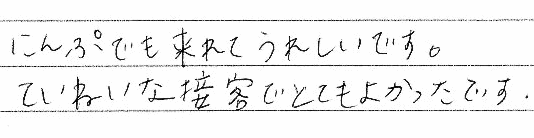 にんぷでも来れてうれしいです。
ていねいな接客でとてもよかったです.